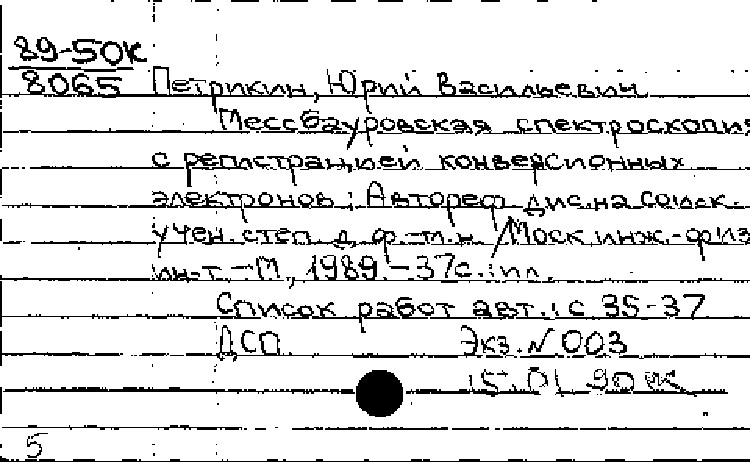 89-50К
8065
Петрикин, Юрий Васильевич
Мессбауровская спектроскопия
с регистрацией конверсионных
электронов: Автореф дис. на соиск.
учен. степ. д. ф.-м. н. / Моск. инж.-физ
ин-т. - М., 1989. - 37с.: ил.
Список работ авт.: с 35-37
ДСП. Экз. № 003
15.01.90
5